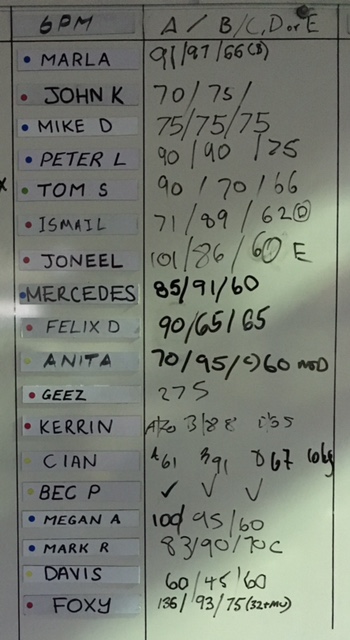 6PM A / B/C, D or E
MARLA 91/97/66(B)
JOHN K 70/75/
MIKE D 75/75/75
PETER L 90/90/75
X TOM S 90/70/66
ISMAIL 71/89/62 D
JONEEL 101/86/60 E
MERCEDES 85/91/60
FELIX D 90/65/65
ANITA 70/95/C)60 MOD
GEEZ 275
KERRIN B/88
CIAN A61 B91 D67
BEC P ✓ ✓ ✓
MEGAN A 100/95/60
MARK R 83/90/70C
DAVIS 60/45/60
FOXY 136/93/75